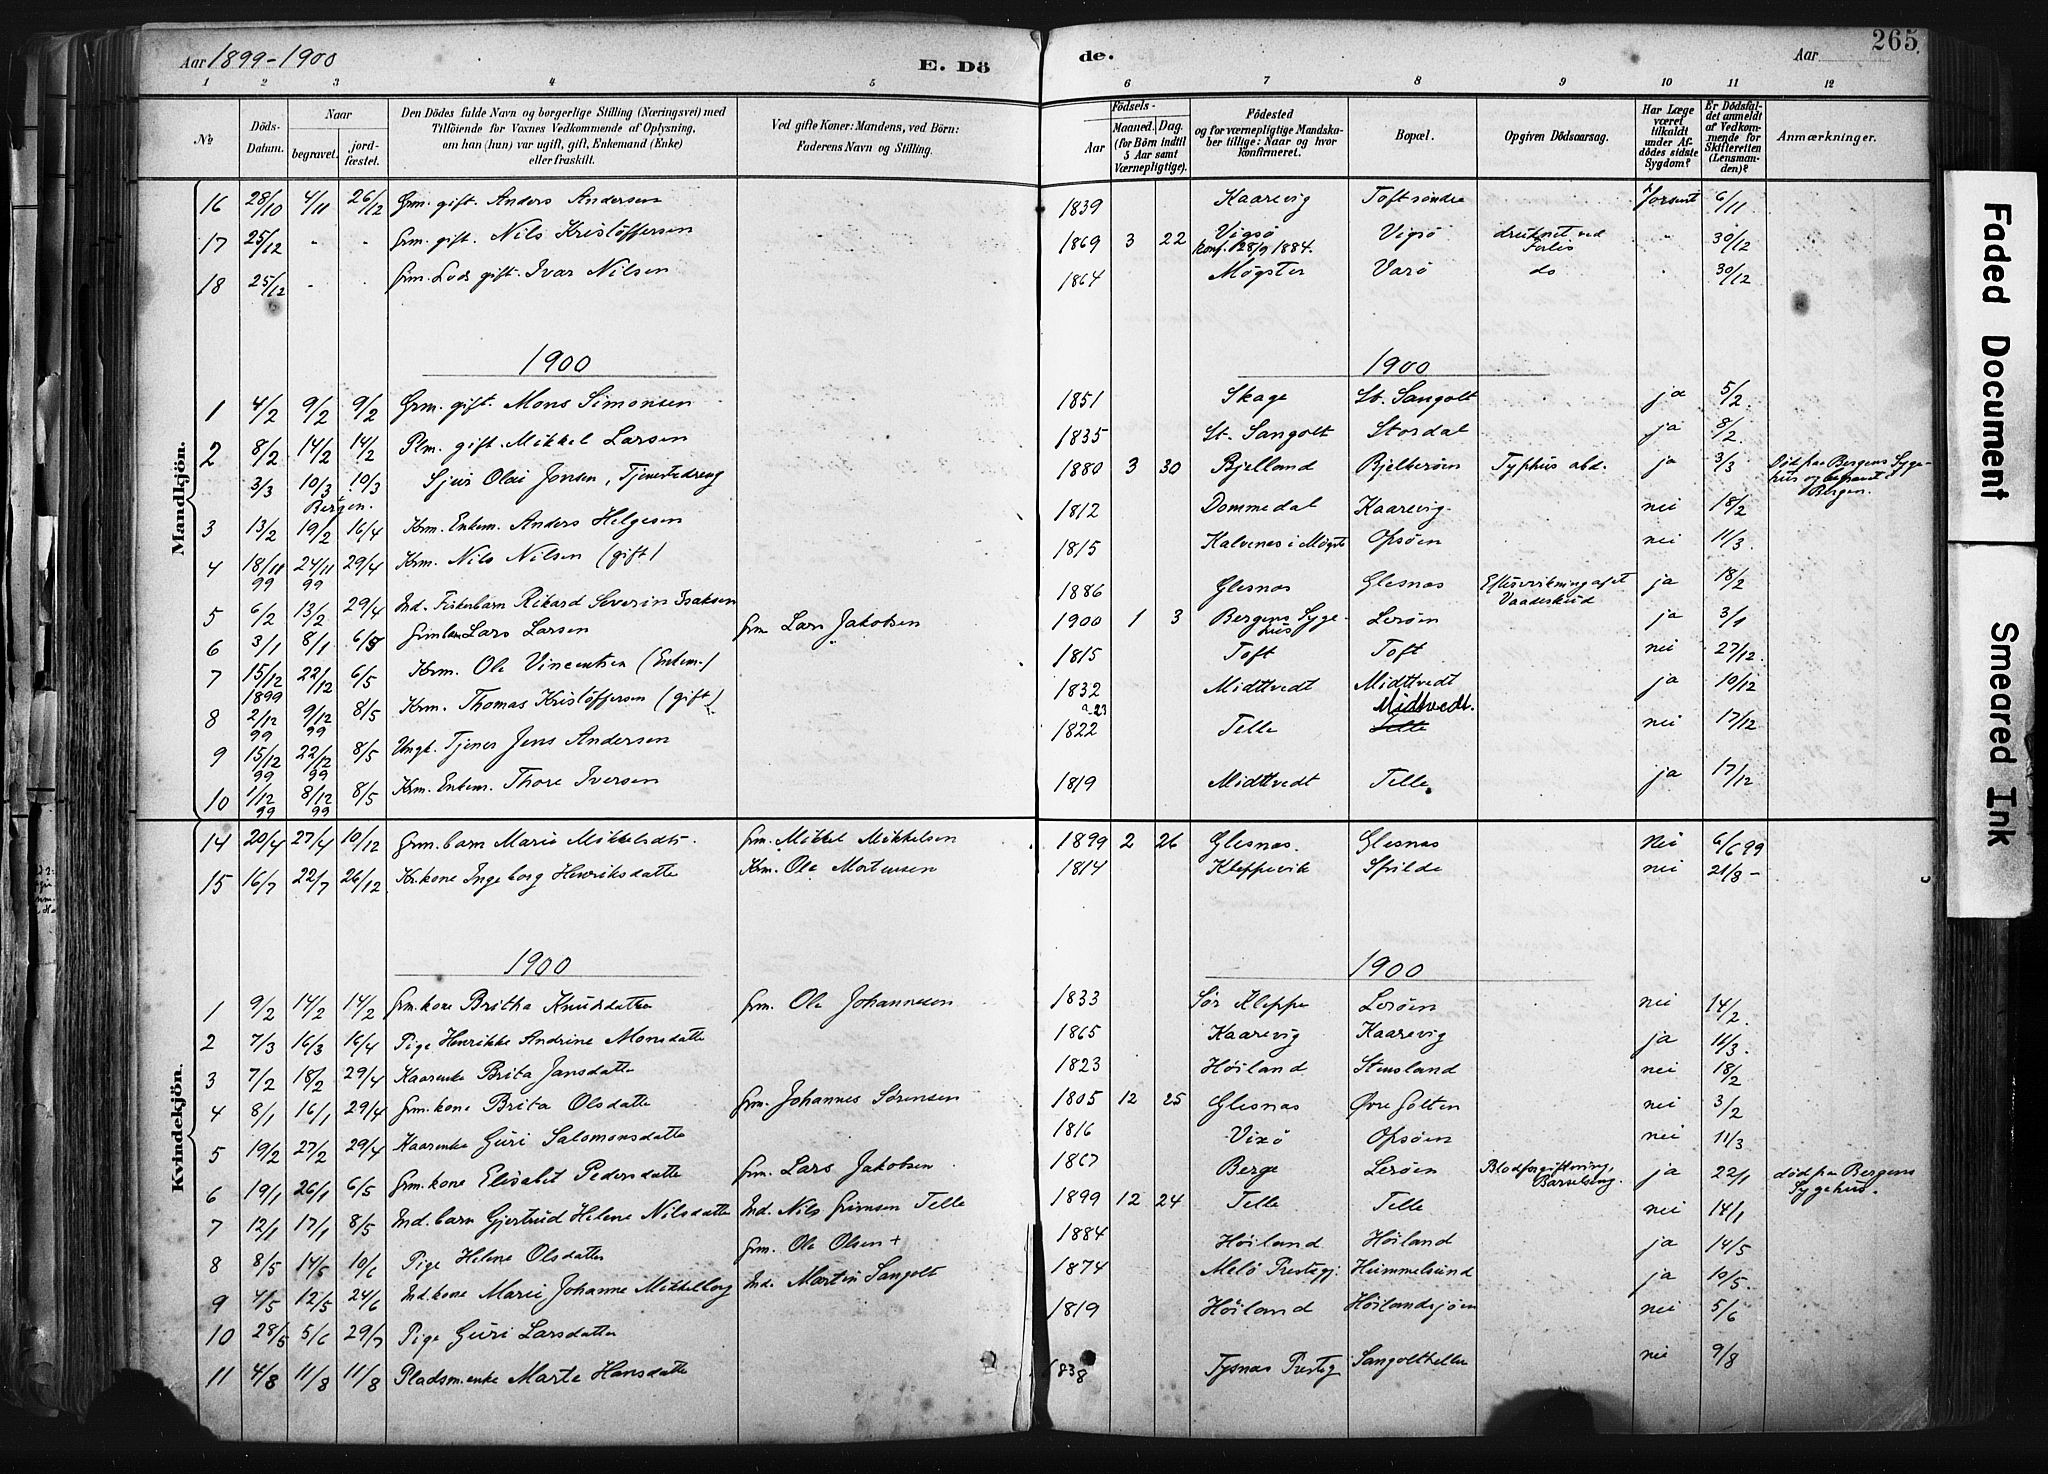 Aar 1899-1900
E. Dö
de.
Aar
265
1 2 3 4 5 6 7 8 9 10 11 12
№
Döds-Datum.
Naar
begravet.
jordfæstet.
Den Dödes fulde Navn og borgerlige Stilling (Næringsvei) med
Tilföiende for Voxnes Vedkommende af Oplysning,
om han (hun) var ugift, gift, Enkemand (Enke)
eller fraskilt.
Ved gifte Koner: Mandens, ved Börn:
Faderens Navn og Stilling.
Födsels-
Aar
Maaned. Dag.
(for Börn indtil 5 Aar samt Værnepligtige).
Födested
og for værnepligtige Mandska-
ber tillige: Naar og hvor
konfirmeret.
Bopæl.
Opgiven Dödsaarsag.
Har Læge været tilkaldt under Afdödes sidste Sygdom?
Er Dödsfaldet anmeldt af Vedkommende for Skifteretten (Lensmanden)?
Anmærkninger.
Mandkjön.
16 28/10 4/11 26/12 Grm. gift. Anders Andersen 1839 Kaarevig Toft söndre forsent 6/11
17 25/12 - - Grm. gift. Nils Kristoffersen 1869 3 22 Vigsö Vigsö druknet ved Forlis - 30/12
konf. 28/9 1884.
18 25/12 - - Grm. Lods gift. Ivar Nilsen 1864 Møgster Varö do - 30/12
1900
1900
1 4/2 9/2 9/2 Grm. gift. Mons Simonsen 1851 Skage St. Sangolt ja 5/2
2 8/2 14/2 14/2 Plm. gift. Mikkel Larsen 1835 St. Sangolt Stordal ja 8/2
3/3 10/3 10/3 Sjur Olai Jonsen, Tjenestedreng 1880 3 30 Bjelland Bjelberöen Typhus abd. ja 3/3 Död paa Bergens Sygehus og begravet i Bergen.
Bergen.
3 13/2 19/2 16/4 Krm. Enkem. Anders Helgesen 1812 Dommedal Kaarevig nei 18/2
4 18/11 99 24/11 99 29/4 Krm. Nils Nilsen (gift) 1815 Kalvenes i Møgst. Ofsöen nei 11/3
5 6/2 13/2 29/4 Ind. Fiskerbarn Rikard Severin Isaksen 1886 Glesnæs Glesnæs Eftervirkning af et Vaadeskud ja 18/2
6 3/1 8/1 6/5 Grm barn Lars Larsen Grm Lars Jakobsen 1900 1 3 Bergens Sygehus Leröen ja 3/1
7 15/12 1899 22/12 6/5 Krm. Ole Vincentsen (Enkem.) 1815 Toft Toft nei 27/12
8 2/12 99 9/12 99 8/5 Krm. Thomas Kristoffersen (gift) 1832 Midttvedt Midttvedt ja 10/12
9 15/12 99 22/12 99 8/5 Ungk. Tjener Jens Andersen 1822 Telle Midtvedt. nei 17/12
10 1/12 99 8/12 99 8/5 Krm. Enkem. Thore Iversen 1819 Midttvedt Telle. ja 17/12
Kvindekjön.
14 20/4 27/4 10/12 Grm. barn Marie Mikkelsdtr. Grm. Mikkel Mikkelsen 1899 2 26 Glesnæs. Glesnæs nei 6/6 99
15 16/7 22/7 26/12 Kr. kone Ingeborg Henriksdatter Krm. Ole Mortensen 1814 Kleppevik Spilde nei 21/8 -
1900
1900
1 9/2 14/2 14/2 Grm. kone Britha Knudsdatter Grm. Ole Johannesen 1833 Sör Kleppe Leröen nei 14/2
2 7/3 16/3 16/4 Pige Henrikke Andrine Monsdatter 1865 Kaarevig Kaarevig ja 11/3
3 7/2 18/2 29/4 Kaarenke Brita Jansdatter 1823 Höiland Stensland nei 18/2
4 8/1 16/1 29/4 Grm. kone Brita Olsdatter Grm. Johannes Sørensen 1805 12 25 Glesnæs Øvre Golten nei 3/2
5 19/2 27/2 29/4 Kaarenke Guri Salomonsdatter 1816 Vixö Ofsöen nei 11/3
6 19/1 26/1 6/5 Grm. kone Elisabet Pedersdatter Grm. Lars Jakobsen 1867 Berge Leröen Blodforgiftning, Barselseng. ja 22/1 död paa Bergens Sygehus.
7 12/1 17/1 8/5 Ind. barn Gjertrud Helene Nilsdatter Ind. Nils Grimsen Telle 1899 12 24 Telle Telle nei 14/1
8 8/5 14/5 10/6 Pige Helene Olsdatter Grm. Ole Olsen + 1884 Höiland Höiland ja 14/5
9 4/5 12/5 24/6 Ind. kone Marie Johanne Mikkelborg Ind. Martin Sangolt 1874 Melö Prestegj. Hummelsund ja 10/5
10 28/5 5/6 29/7 Pige Guri Larsdatter 1819 Höiland Höilandsjöen nei 5/6
11 4/8 11/8 11/8 Pladsm. enke Marte Hansdatter 1838 Tysnæs Prestegj Sangolthella nei 9/8
Faded Document
Smeared Ink